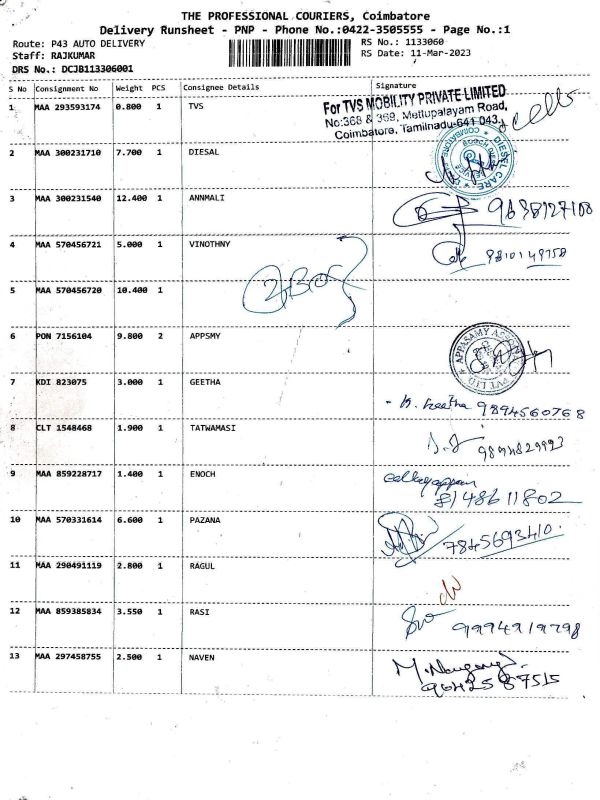 THE PROFESSIONAL COURIERS, Coimbatore
Delivery Runsheet - PNP - Phone No.:0422-3505555 - Page No.:1
Route: P43 AUTO DELIVERY RS No.: 1133060
Staff: RAJKUMAR RS Date: 11-Mar-2023
DRS No.: DCJB113306001
S No Consignment No Weight PCS Consignee Details Signature
1 MAA 293593174 0.800 1 TVS
For TVS MOBILITY PRIVATE LIMITED
No:368 & 369, Mettupalayam Road,
Coimbatore, Tamilnadu-641 043.
2 MAA 300231710 7.700 1 DIESAL
DIESEL CARE
3 MAA 300231540 12.400 1 ANNMALI
4 MAA 570456721 5.000 1 VINOTHNY
5 MAA 570456720 10.400 1
6 PON 7156104 9.800 2 APPSMY
7 KDI 823075 3.000 1 GEETHA 9894560768
8 CLT 1548468 1.900 1 TATWAMASI
9 MAA 859228717 1.400 1 ENOCH
8148611802
10 MAA 570331614 6.600 1 PAZANA 7845693410.
11 MAA 290491119 2.800 1 RAGUL
12 MAA 859385834 3.550 1 RASI
13 MAA 297458755 2.500 1 NAVEN